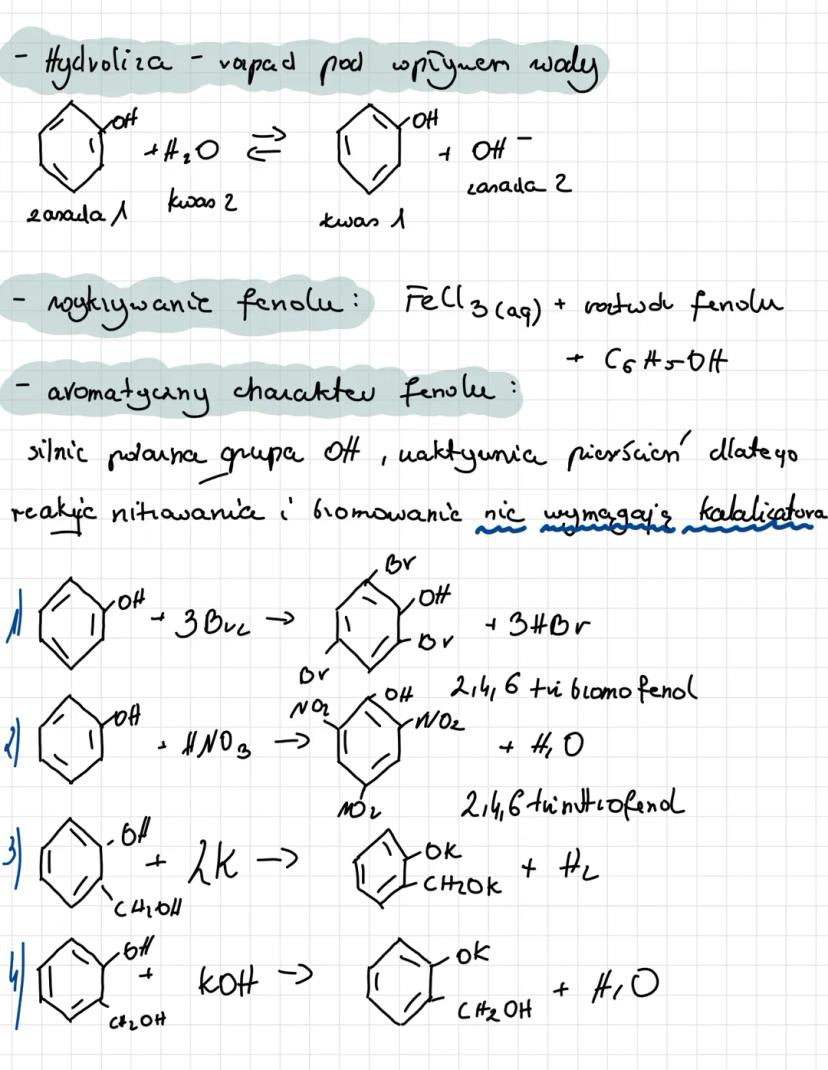 - Hydroliza - rozpad pod wpływem wody
OH + H₂O ⇌ OH + OH⁻
zasada 1 kwas 2 kwas 1 zasada 2
- wykrywanie fenolu: FeCl₃(aq) + roztwór fenolu
+ C₆H₅-OH
- aromatyczny charakter fenolu:
silnie polarna grupa OH, uaktywnia pierścień dlatego
reakcje nitrowania i bromowanie nie wymagają katalizatora
1) OH + 3Br₂ → Br OH Br Br + 3HBr
2,4,6 tribromofenol
2) OH + HNO₃ → NO₂ OH NO₂ NO₂ + H₂O
2,4,6 trinitrofenol
3) OH CH₂OH + 2K → OK CH₂OK + H₂
4) OH CH₂OH + KOH → OK CH₂OH + H₂O